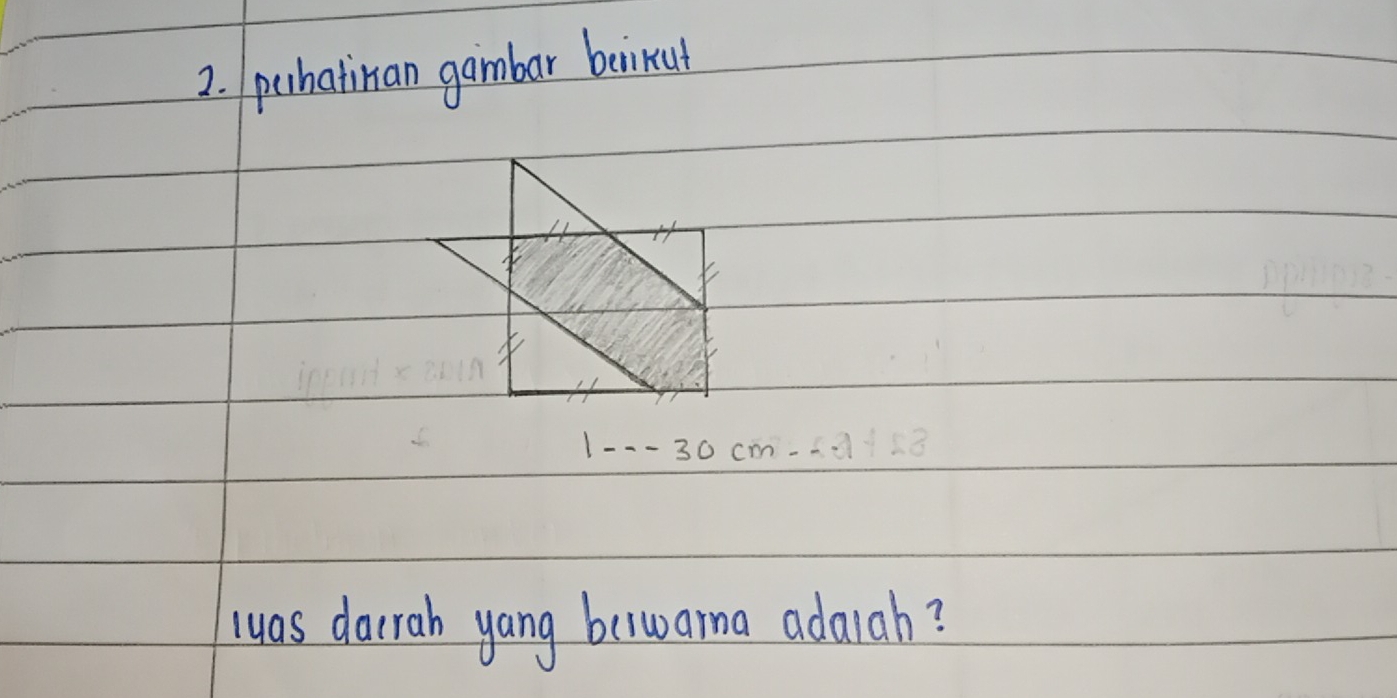 2. perhatikan gambar berikut
1 --- 30 cm - - -
luas daerah yang berwarna adalah?